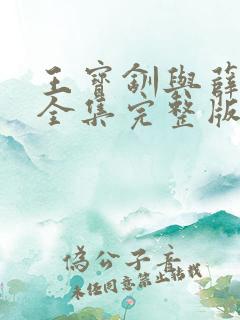 王寶釧與薛
全集完整版
偽公子音
未經同意禁止轉載